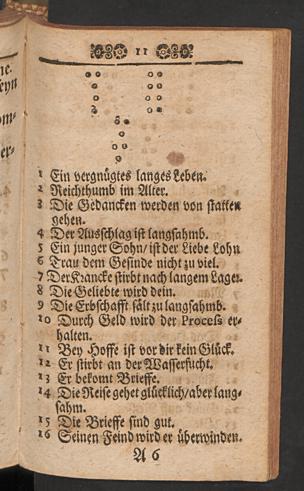 11
1 Ein vergnügtes langes Leben.
2 Reichthumb im Alter.
3 Die Gedancken werden von statten
gehen.
4 Der Ausschlag ist langsahmb.
5 Ein junger Sohn / ist der Liebe Lohn
6 Trau dem Gesinde nicht zu viel.
7 Der Krancke stirbt nach langem Lager.
8 Die Geliebte wird dein.
9 Die Erbschafft fält zu langsahmb.
10 Durch Geld wird der Process er-
halten.
11 Bey Hoffe ist vor dir kein Glück.
12 Er stirbt an der Wassersucht.
13 Er bekomt Brieffe.
14 Die Reise gehet glücklich / aber lang-
sahm.
15 Die Brieffe sind gut.
16 Seinen Feind wird er überwinden.
A 6